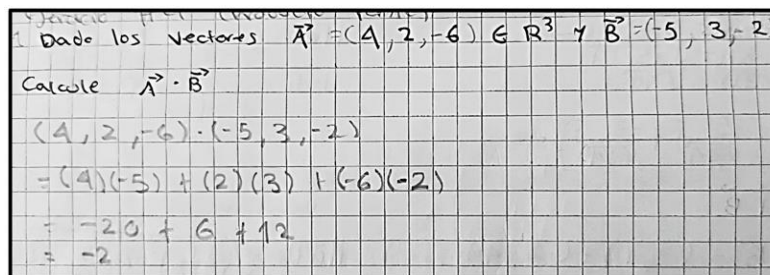 1 Dado los vectores A⃗ =(4,2,-6) ∈ R³ y B⃗ =(-5, 3,-2
Calcule A⃗ · B⃗
(4,2,-6)·(-5,3,-2)
=(4)(-5) + (2)(3) + (-6)(-2)
= -20 + 6 +12
= -2